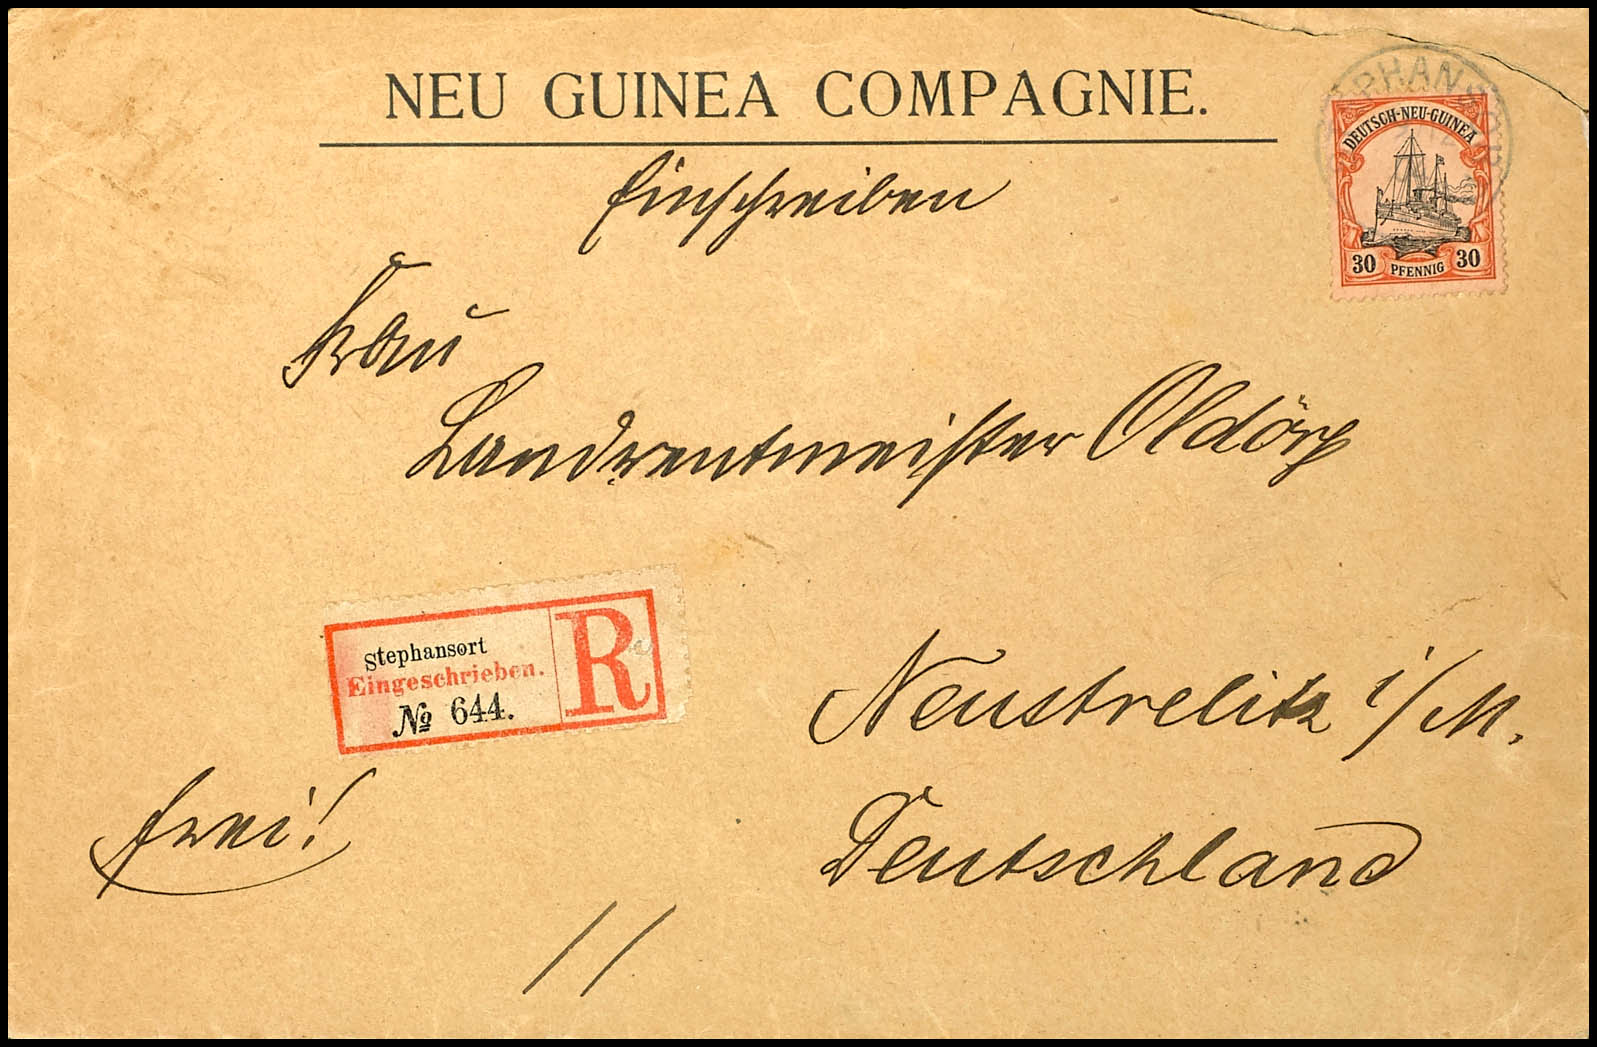 NEU GUINEA COMPAGNIE.
Einschreiben
DEUTSCH-NEU-GUINEA
30 PFENNIG 30
Frau
Landrentmeister Oldörp
Stephansort
Eingeschrieben.
№ 644.
R
Neustrelitz i/M.
Deutschland
frei!